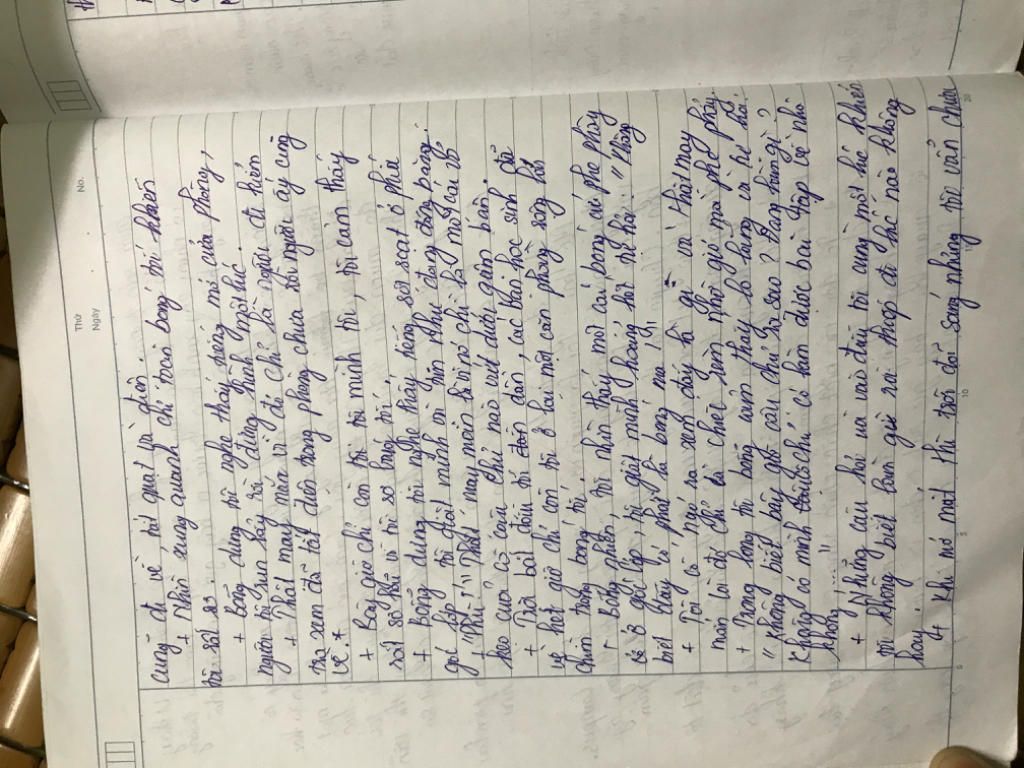 Thứ
Ngày
No.
cũng đi về nó quạt và điện.
+ Nhìn xung quanh chỉ toàn bóng tối khiến
tôi sởn sợ.
+ Bỗng dưng tôi nghe thấy tiếng mở cửa phòng,
người tôi run lẩy và đứng hình một lúc.
+ Thật may mắn vì đó chỉ là người đi kiểm
tra xem đã tắt điện trong phòng chưa rồi người ấy cũng
về.
+ Bây giờ chỉ còn tôi với mình tôi, tôi cảm thấy
rất sợ hãi vì tôi sợ bóng tối.
+ Bỗng dưng tôi nghe thấy tiếng sột soạt ở phía
góc lớp, tôi giật mình và gần như đứng đóng băng.
"Phù!" Thật may mắn khi nó chỉ là một cái vỏ
kẹo của cô cậu chủ nào vứt dưới gầm bàn.
+ Trời bắt đầu tối dần, các bạn học sinh đã
về hết giờ chỉ còn tôi ở lại một căn phòng rộng lớn
chìm trong bóng tối.
+ Bỗng nhiên, tôi nhìn thấy một cái bóng cứ phe phẩy
từ góc lớp, tôi giật mình hoảng hốt rồi tự hỏi: "Không
biết đây có phải là bóng ma"
+ Tôi cố ngó ra xem đấy là gì và thật may
mắn khi đó chỉ là chiếc rèm nhờ gió mà phe phẩy.
+ Trong lòng tôi bỗng cảm thấy lo lắng và tự hỏi:
"Không biết bây giờ cậu chủ ra sao? Đang làm gì?
Không có mình cậu chủ có làm được bài tập về nhà
không,...."
+ Những câu hỏi và vào đầu tôi cùng một lúc khiến
tôi không biết bây giờ nói tiếp đi thế nào không
hay.
+ Khi nó mát thì trời đã sáng nhưng tôi vẫn chưa